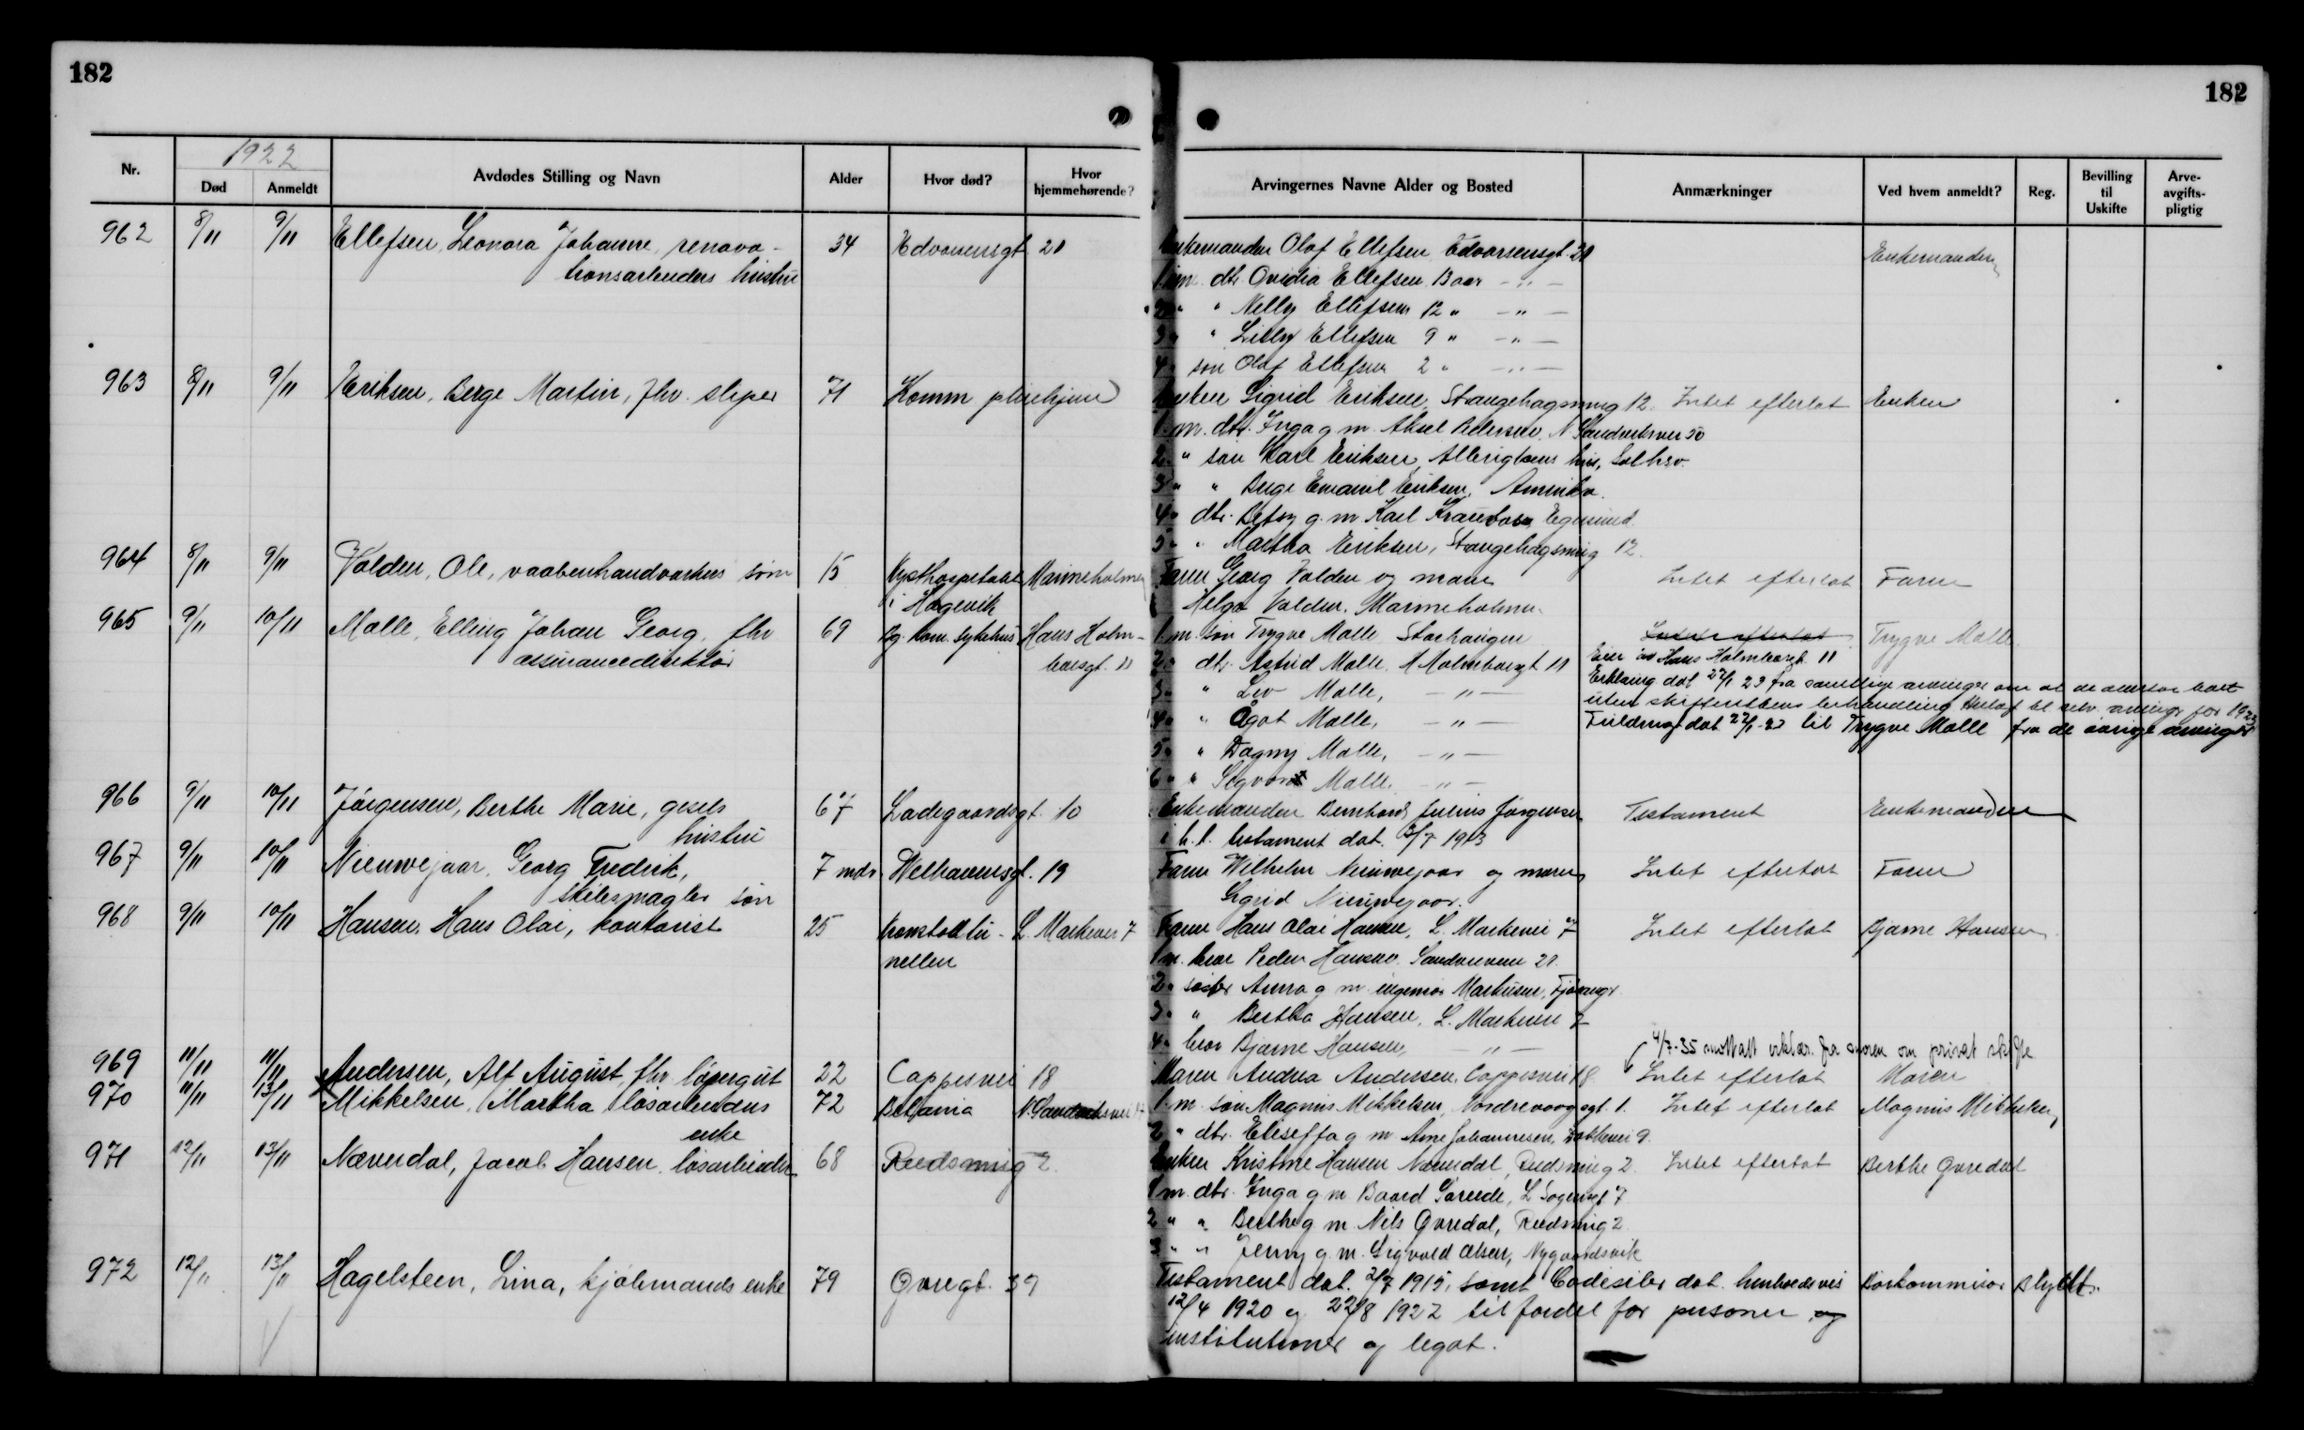 182
182
1922
Nr. Død Anmeldt Avdødes Stilling og Navn Alder Hvor død? Hvor hjemmehørende? Arvingernes Navne Alder og Bosted Anmærkninger Ved hvem anmeldt? Reg. Bevilling til Uskifte Arve-avgifts-pligtig
962 8/11 9/11 Ellefsen, Leonora Johanne, renova- 34 Edvardsensgt 20 Enkemanden Olaf Ellefsen Edvardsensgt. 20 Enkemanden
tionsarbeiders hustru 1. m. dtr. Ovidia Ellefsen 13 aar - " -
2 " " Nelly Ellefsen 12 " - " -
3 " " Lilly Ellefsen 9 " - " -
4 " søn Olaf Ellefsen 2 " - " -
963 8/11 9/11 Eriksen, Berge Martin, fhv. sliper 71 Komm. pleiehjem Enken Sigrid Eriksen, Stangehagsmug 12. Intet efterlat Enken
1. m. dtr. Inga g. m. Aksel Pedersen, N. Sandviksvei 50
2. " søn Karl Eriksen,
3 " " Berge Emanuel Eriksen, Amerika.
4 " dtr. Betsy g. m. Karl Egersund.
5 " " Martha Eriksen, Stangehagsmug 12.
964 8/11 9/11 Valden, Ole, vaabenhandverkers søn 15 Kysthospitalet Marineholmen Faren Georg Valden og moren Intet efterlat Faren
i Hagevik Helga Valden, Marineholmen.
965 9/11 10/11 Malle, Elling Johan Georg, fhv 69 Bg. kom. sykehus Hans Holm- 1. m. søn Trygve Malle Storhaugen Intet efterlat Trygve Malle.
assurancedirektør boesgt. 11 2 " dtr. Astrid Malle, H. Holmboesgt 11 Eier av Hans Holmboesgt. 11
3 " " Liv Malle, - " - Erklæring dat 22/1 23 fra samtlige arvinger om at de overtar boet
4 " " Ågot Malle, - " - uten skifterettens behandling
Fuldmagt dat 22/1-23 til Trygve Malle fra de øvrige arvinger
5 " " Dagny Malle, - " -
6 " " Sigvart Malle. - " -
966 9/11 10/11 Jørgensen, Berthe Marie, gesels 67 Ladegaardsgt. 10 Enkemanden Bernhard Julius Jørgensen Testament Enkemanden
hustru i h. t. testament dat. 3/7 1913
967 9/11 10/11 Nieuwejaar, Georg Fredrik, 7 mdr. Welhavensgt. 19 Faren Wilhelm Nieuwejaar og moren Intet efterlat Faren
skibsmægler søn Sigrid Nieuwejaar.
968 9/11 10/11 Hansen, Hans Olai, kontorist 25 L. Markevei 7 Faren Hans Olai Hansen, L. Markevei 7 Intet efterlat Bjarne Hansen
nellen 1 m. bror Peder Hansen Sandviksveien 21.
2 " søster Anna g. m. ingeniør Markusen,
3 " " Bertha Hansen, L. Markevei 7
4 " bror Bjarne Hansen, - " - 4/7-35 mottatt erklær. fra moren om privat skifte
969 11/11 11/11 Andersen, Alf August, fhv. løpergut 22 Cappesvei 18 Moren Andrea Andersen, Cappesvei 18 Intet efterlat Moren
970 11/11 13/11 Mikkelsen, Martha løsarbeiders 72 Betania N. Sandviksvei 1 m. søn Magnus Mikkelsen, Nordrevaagsgt. 1. Intet efterlat Magnus Mikkelsen,
enke 2 " dtr. Eliseffa g. m. Arne Johannesen, 9.
971 12/11 13/11 Næverdal, Jacob Hansen, løsarbeider 68 Rødsmug 2. Enken Kristine Hansen Næverdal, Rødsmug 2. Intet efterlat Berthe Øvredal
1 m. dtr. Inga g. m. Baard Søreide, 7
2 " " Berthe g. m. Nils Øvredal, Rødsmug 2.
3 " " Jenny g. m. Sigvald Olsen, Nygaardsvik
972 12/11 13/11 Hagelsteen, Lina, kjøbmands enke 79 Øvregt. 39 Testament dat. 2/7 1915, samt Codesiler dat. henholdsvis
12/4 1920 og 22/8 1922 til fordel for personer og
institutioner og legat.